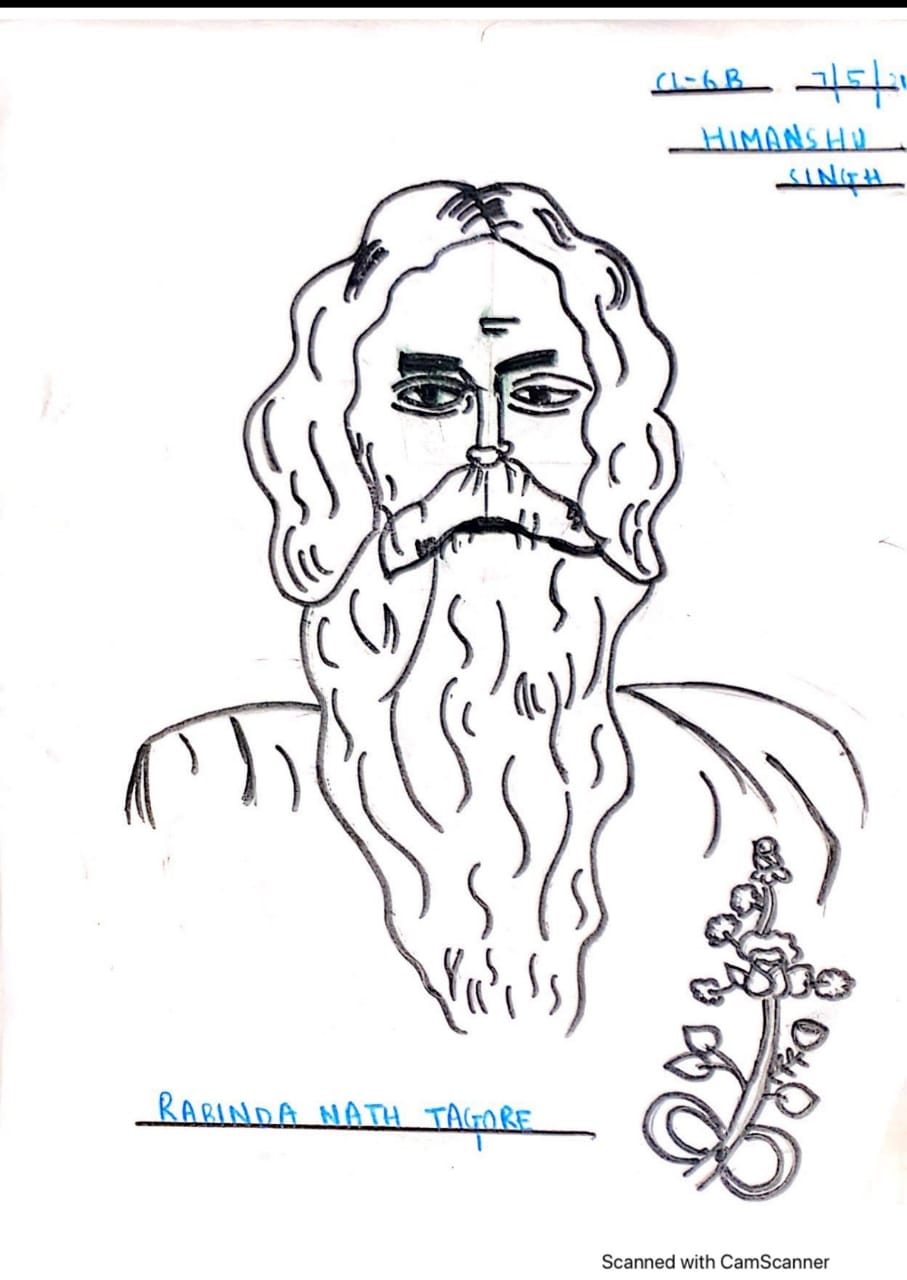 CL-6B 7/5/2
HIMANSHU
SINGH
RABINDA NATH TAGORE
Scanned with CamScanner